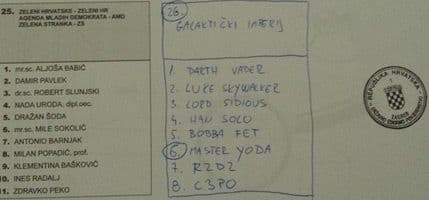 25. ZELENI HRVATSKE - ZELENI HR
AGENDA MLADIH DEMOKRATA - AMD
ZELENA STRANKA - ZS
1. mr.sc. ALJOŠA BABIĆ
2. DAMIR PAVLEK
3. dr.sc. ROBERT SLUNJSKI
4. NADA URODA, dipl.oec.
5. DRAŽAN ŠODA
6. mr.sc. MILE SOKOLIĆ
7. ANTONIO BARNJAK
8. MILAN POPADIĆ, prof.
9. KLEMENTINA BAŠKOVIĆ
10. INES RADALJ
11. ZDRAVKO PEKO
26.
GALAKTIČKI IMPERIJ
1. DARTH VADER
2. LUKE SKYWALKER
3. LORD SIDIOUS
4. HAN SOLO
5. BOBBA FET
6. MASTER YODA
7. R2D2
8. C3PO
REPUBLIKA HRVATSKA
ZAGREB